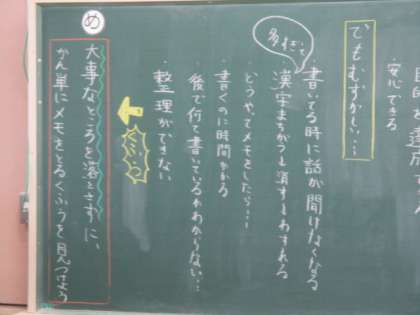 安心できる
でもむずかしい…
多すぎて
・書いてる時に話が聞けなくなる
・漢字まちがうと消すとわすれる
・どうやってメモをしたら…
・書くのに時間かかる
・後で何て書いているかわからない…
・整理ができない
くふう
め
大事なところを落とさずに、
かん単にメモをとるくふうを見つけよう